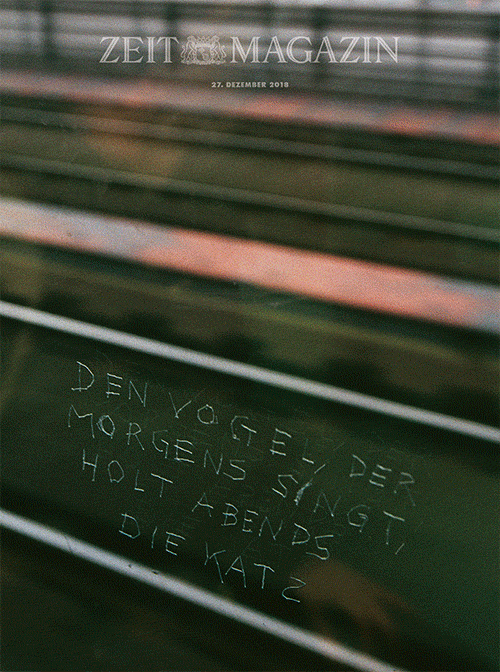 ZEIT MAGAZIN
27. DEZEMBER 2018
DEN VOGEL, DER
MORGENS SINGT,
HOLT ABENDS
DIE KATZ